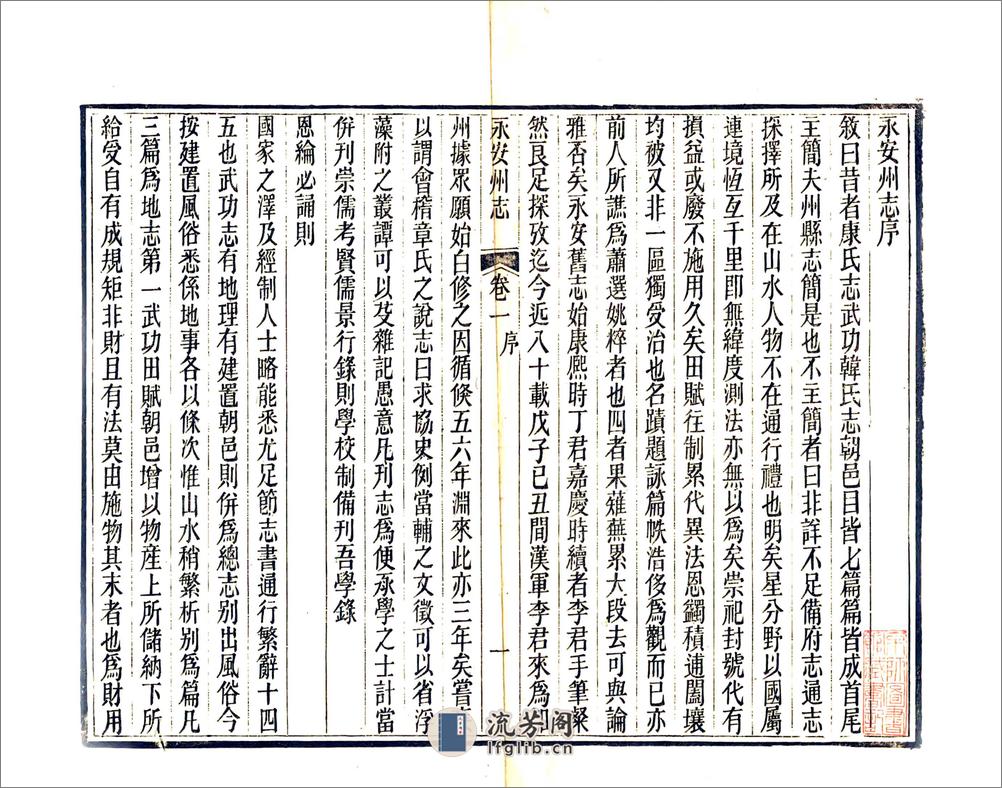 永安州志序
敘曰昔者康氏志武功韓氏志朝邑目皆七篇篇皆成首尾
主簡夫州縣志簡是也不主簡者曰非詳不足備府志通志
採擇所及在山水人物不在通行禮也明矣星分野以國屬
連境恆互千里即無緯度測法亦無以為矣崇祀封號代有
損益或廢不施用久矣田賦往制累代異法恩蠲積逋闔壤
均被又非一區獨受治也名蹟題詠篇帙浩侈為觀而已亦
前人所譏為蕭選姚粹者也四者果薙蕪累大段去可與論
雅否矣永安舊志始康熙時丁君嘉慶時續者李君手筆粲
然良足探攷迄今近八十載戊子己丑間漢軍李君來為
永安州志
卷一
序
一
州據眾願始白修之因循倏五六年淵來此亦三年矣嘗
以謂會稽章氏之說志曰求協史例當輔之文徵可以省浮
藻附之叢譚可以芟雜記愚意凡刊志為便承學之士計當
併刊崇儒考賢儒景行錄則學校制備刊吾學錄
恩綸必誦則
國家之澤及經制人士略能悉尤足節志書通行繁辭十四
五也武功志有地理有建置朝邑則併為總志别出風俗今
按建置風俗悉係地事各以條次惟山水稍繁析别為篇凡
三篇為地志第一武功田賦朝邑增以物產上所儲納下所
給受自有成規矩非財且有法莫由施物其末者也為財用
流芳阁
lfglib.cn